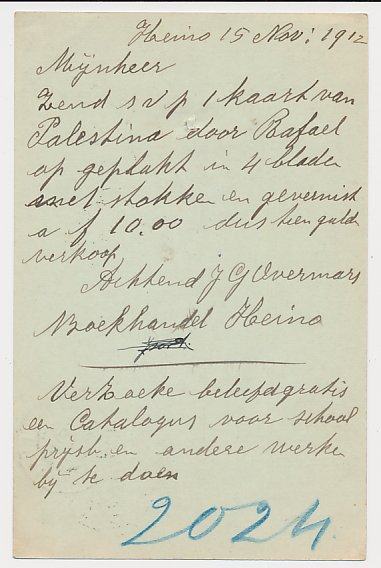 Heino 15 Nov: 1912
Mijnheer
Zend s v p 1 kaart van
Palestina door Rafael
op geplakt in 4 bladen
met stokken en gevernist
a f 10.00 dus tien guld
verkoop
Achtend J G Overmars
Boekhandel Heino
Verzoeke beleefd gratis
een Catalogus voor school
prijsb. en andere werken
bij te doen
2024